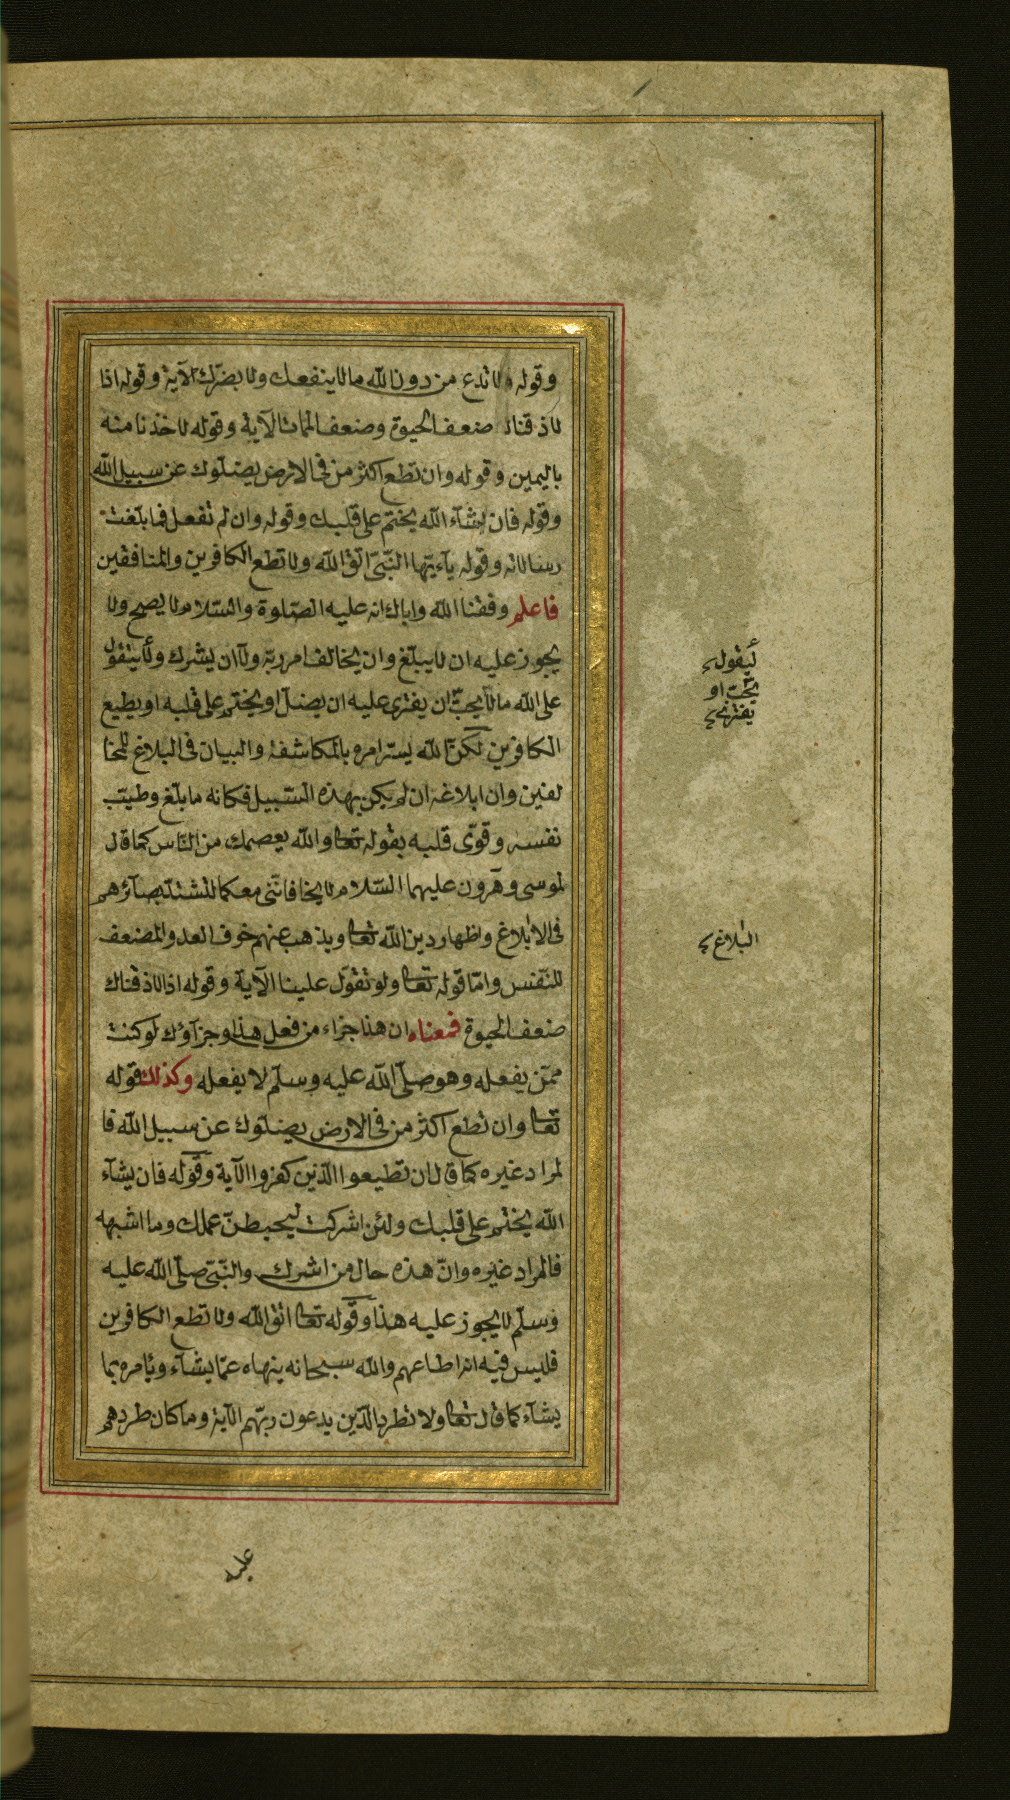 وقوله ولا تدع من دون الله ما لا ينفعك ولا يضرك الآية وقوله اذا
لاذقناك ضعف الحيوة وضعف الممات الآية وقوله لاخذنا منه
باليمين وقوله وان تطع اكثر من فى الارض يضلوك عن سبيل الله
وقوله فان يشآء الله يختم على قلبك وقوله وان لم تفعل فما بلغت
رسالاته وقوله يآءيّها النّبىّ اتق الله ولا تطع الكافرين والمنافقين
فاعلم وفقنا الله واياك انه عليه الصّلوة والسّلام لا يصح ولا
يجوز عليه ان لا يبلّغ وان يخالف امر ربّه ولا ان يشرك ولا يتقول
على الله ما لا يحبّ ان يفترى عليه ان يضلّ او يختم على قلبه او يطيع
الكافرين لكنّ الله يسّر امره بالمكاشفة والبيان فى البلاغ للمخا
لفين وان ابلاغه ان لم يكن بهذه السّبيل فكانه ما بلّغ وطيّب
نفسه وقوّى قلبه بقوله تعا والله يعصمك من النّاس كما قال
لموسى وهرون عليهما السّلام لا يخافا انّنى معكما لتشتدّ بصآئرهم
فى الابلاغ واظهار دين الله تعا ويذهب عنهم خوف العدو المضعف
للنّفس وامّا قوله تعا ولو تقوّل علينا الآية وقوله اذا لاذقناك
ضعف الحيوة فمعناه ان هذا جزاء من فعل هذا وجزآؤك لو كنت
ممّن يفعله وهو صلّى الله عليه وسلّم لا يفعله وكذلك قوله
تعا وان تطع اكثر من فى الارض يضلّوك عن سبيل الله فا
لمراد غيره كما قال ان تطيعوا الّذين كفروا الآية وقوله فان يشآء
الله يختم على قلبك ولئن اشركت ليحبطنّ عملك وما اشبهه
فالمراد غيره وانّ هذه حال من اشرك والنّبىّ صلّى الله عليه
وسلّم لا يجوز عليه هذا وقوله تعا اتق الله ولا تطع الكافرين
فليس فيه انه اطاعهم والله سبحانه ينهاه عمّا يشآء ويأمره بما
يشآء كما قال تعا ولا تطرد الّذين يدعون ربّهم الآية وما كان طردهم
يقول
يحبّ او
يفترى
البلاغ
عليه